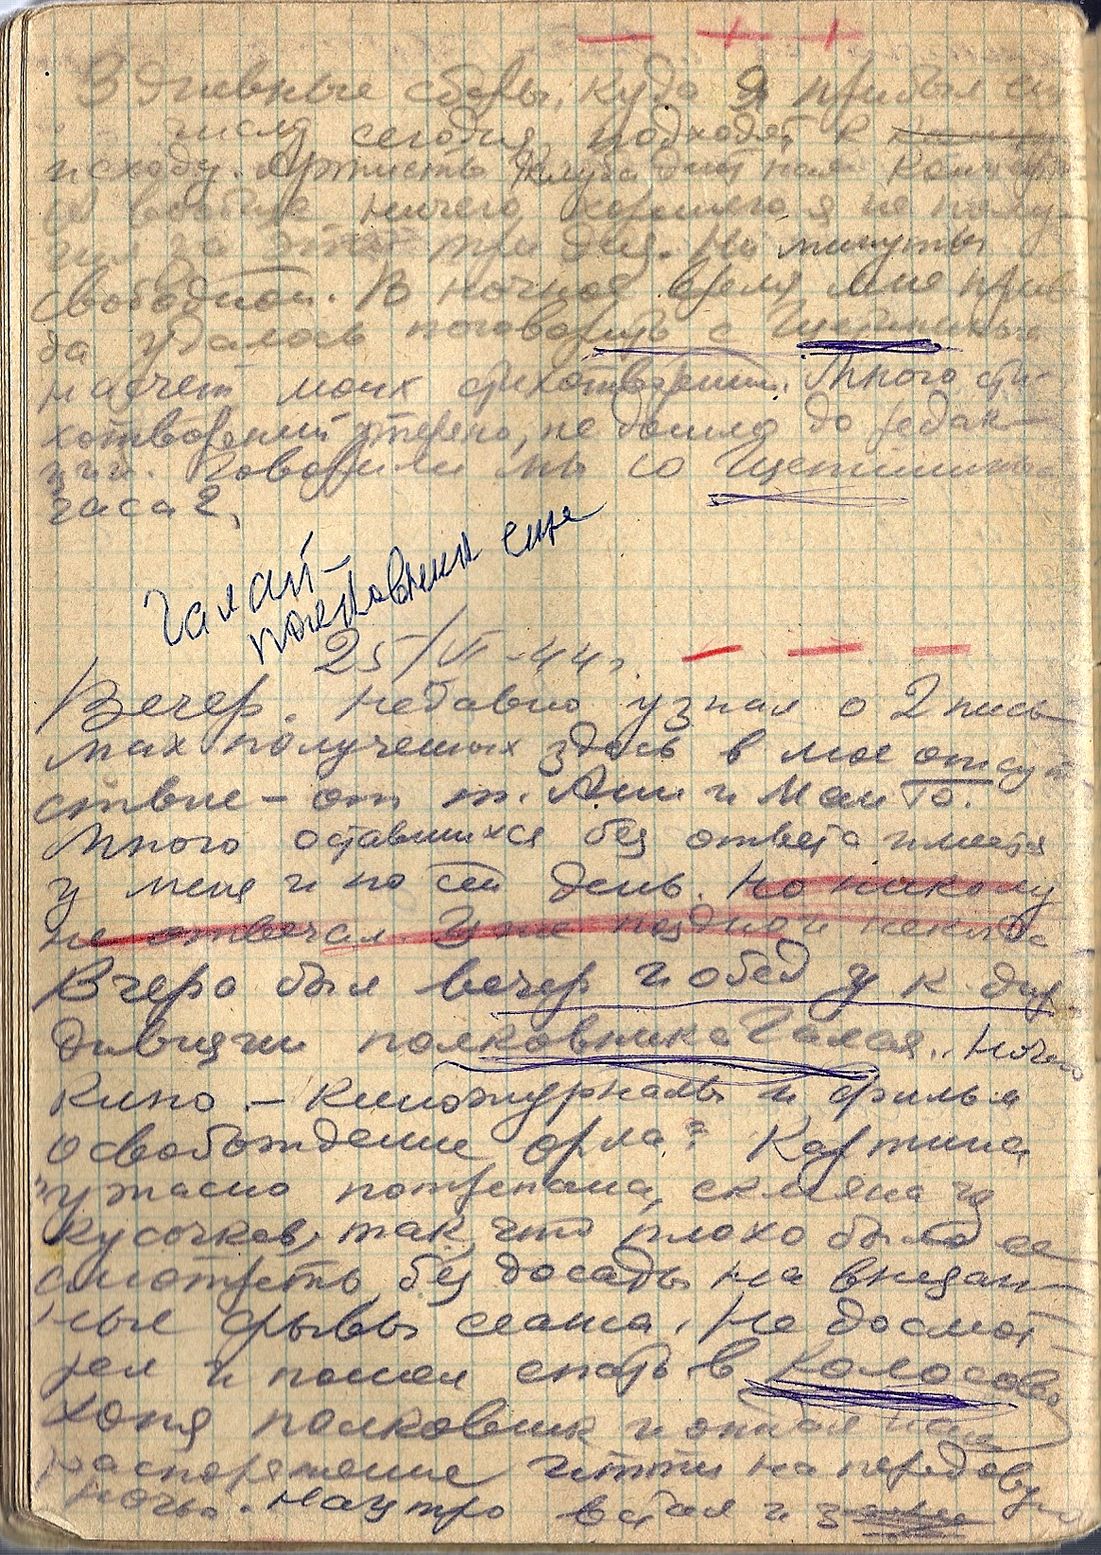 3 дневные сборы, куда я прибыл
числа сегодня подходят к
исходу.
и вообще ничего хорошего я не полу-
чил за эти три дня. Ни минуты
свободной. В ночное время мне прав-
да удалось поговорить с Щетининым
насчет моих стихотворений. Много сти-
хотворений утеряно, не дошло до редак-
ции. Говорили мы со Щетининым
часа 2.
Галай-
полковник
25/VI-44г.
Вечер. Недавно узнал о 2 пись-
мах полученных здесь в мое отсут-
ствие - от т. Ани и Маи
Много оставшихся без ответа имеется
у меня и по сей день. Но никому
не отвечал. Уже поздно и некогда
Вчера был вечер и обед у к-
дивизии полковника Галая. Ночью
кино - киножурналы и фильм
освобождение орла? Картина
ужасно потрепана, склеяна из
кусочков, так, что плохо было ее
смотреть без досады на внезап-
ные срывы сеанса. Не досмот-
рел и пошел спать в Колосово
хотя полковник и отдал
распоряжение итти на передовую
ночью. Наутро встал и